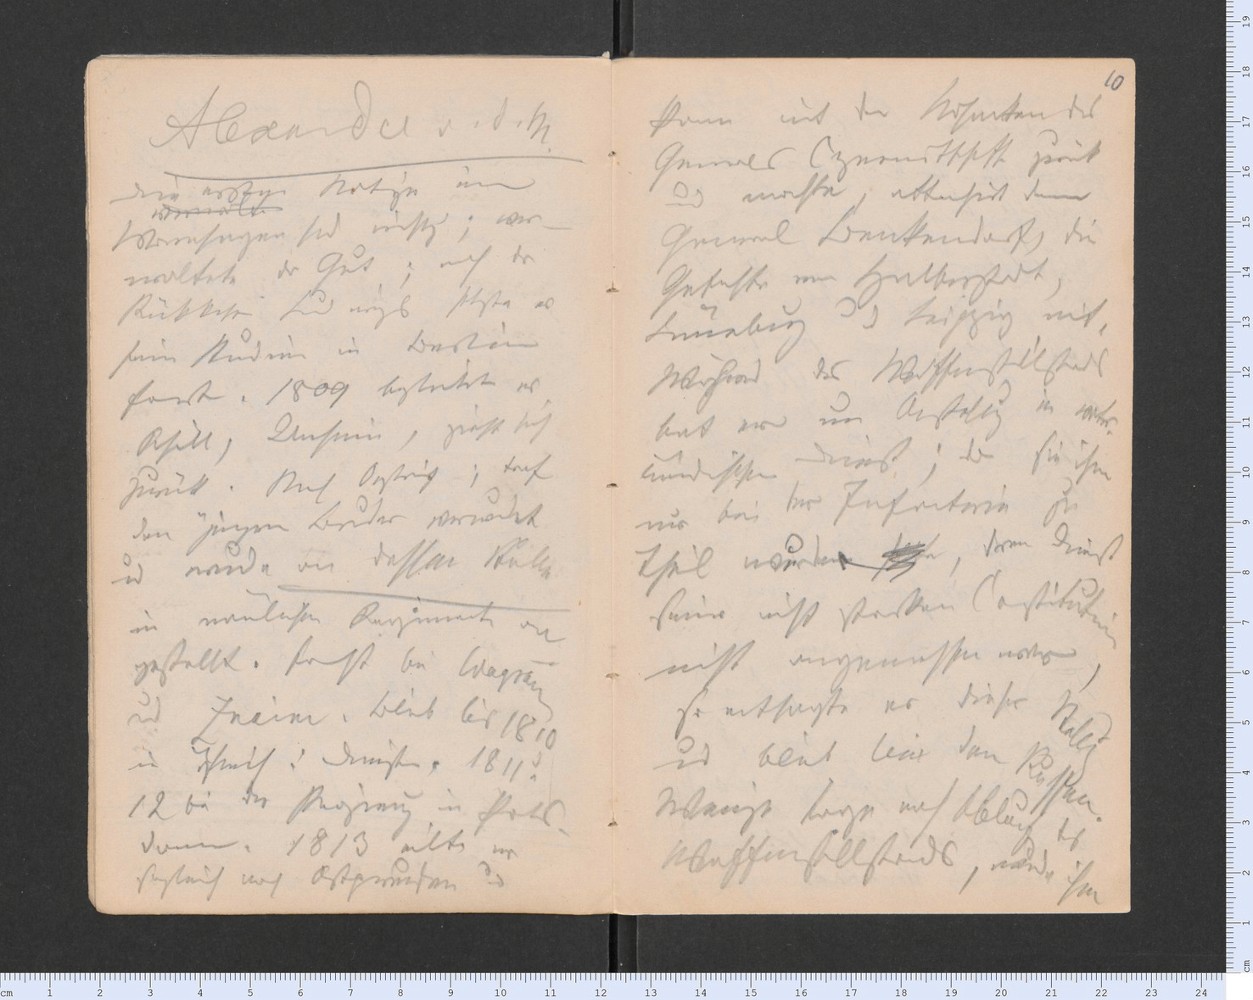 Alexander v. d. M.
Die ersten Notizen
verwalt
Vorhersagen sind nichts; ver-
waltete die Güter; nach der
Rückkehr Ludwigs setzte er
seine Studien in Berlin
fort. 1809 begleitete er
Schill, zieht sich
zurück. Nach Östreich; traf
den jüngern Bruder verwundet
und wurde an dessen Stelle
in nämlichen Regimente an
gestellt. focht bei Wagram
und Znaim. Blieb bis 1810
in Östreich: Diensten. 1811 u.
12 bei der Regierung in Pots-
dam. 1813 eilte er
sogleich nach Ostpreußen und
10
kam mit den Kosacken des
Generals Czernitscheff zurück
und machte, attachirt dem
General Benkendorf, die
Gefechte von Halberstadt,
Lüneburg und Leipzig mit.
Während des Waffenstillstands
bat er um Anstellung in vater-
ländischen Dienst; da sie ihm
nur bei der Infanterie zu
Theil wurde, deren Dienst
seiner nicht starken Constitution
nicht angemessen war,
so entsagte er dieser Stelle
und blieb bei den Russen.
Wenige Tage nach Ablauf des
Waffenstillstands, wurde ihm